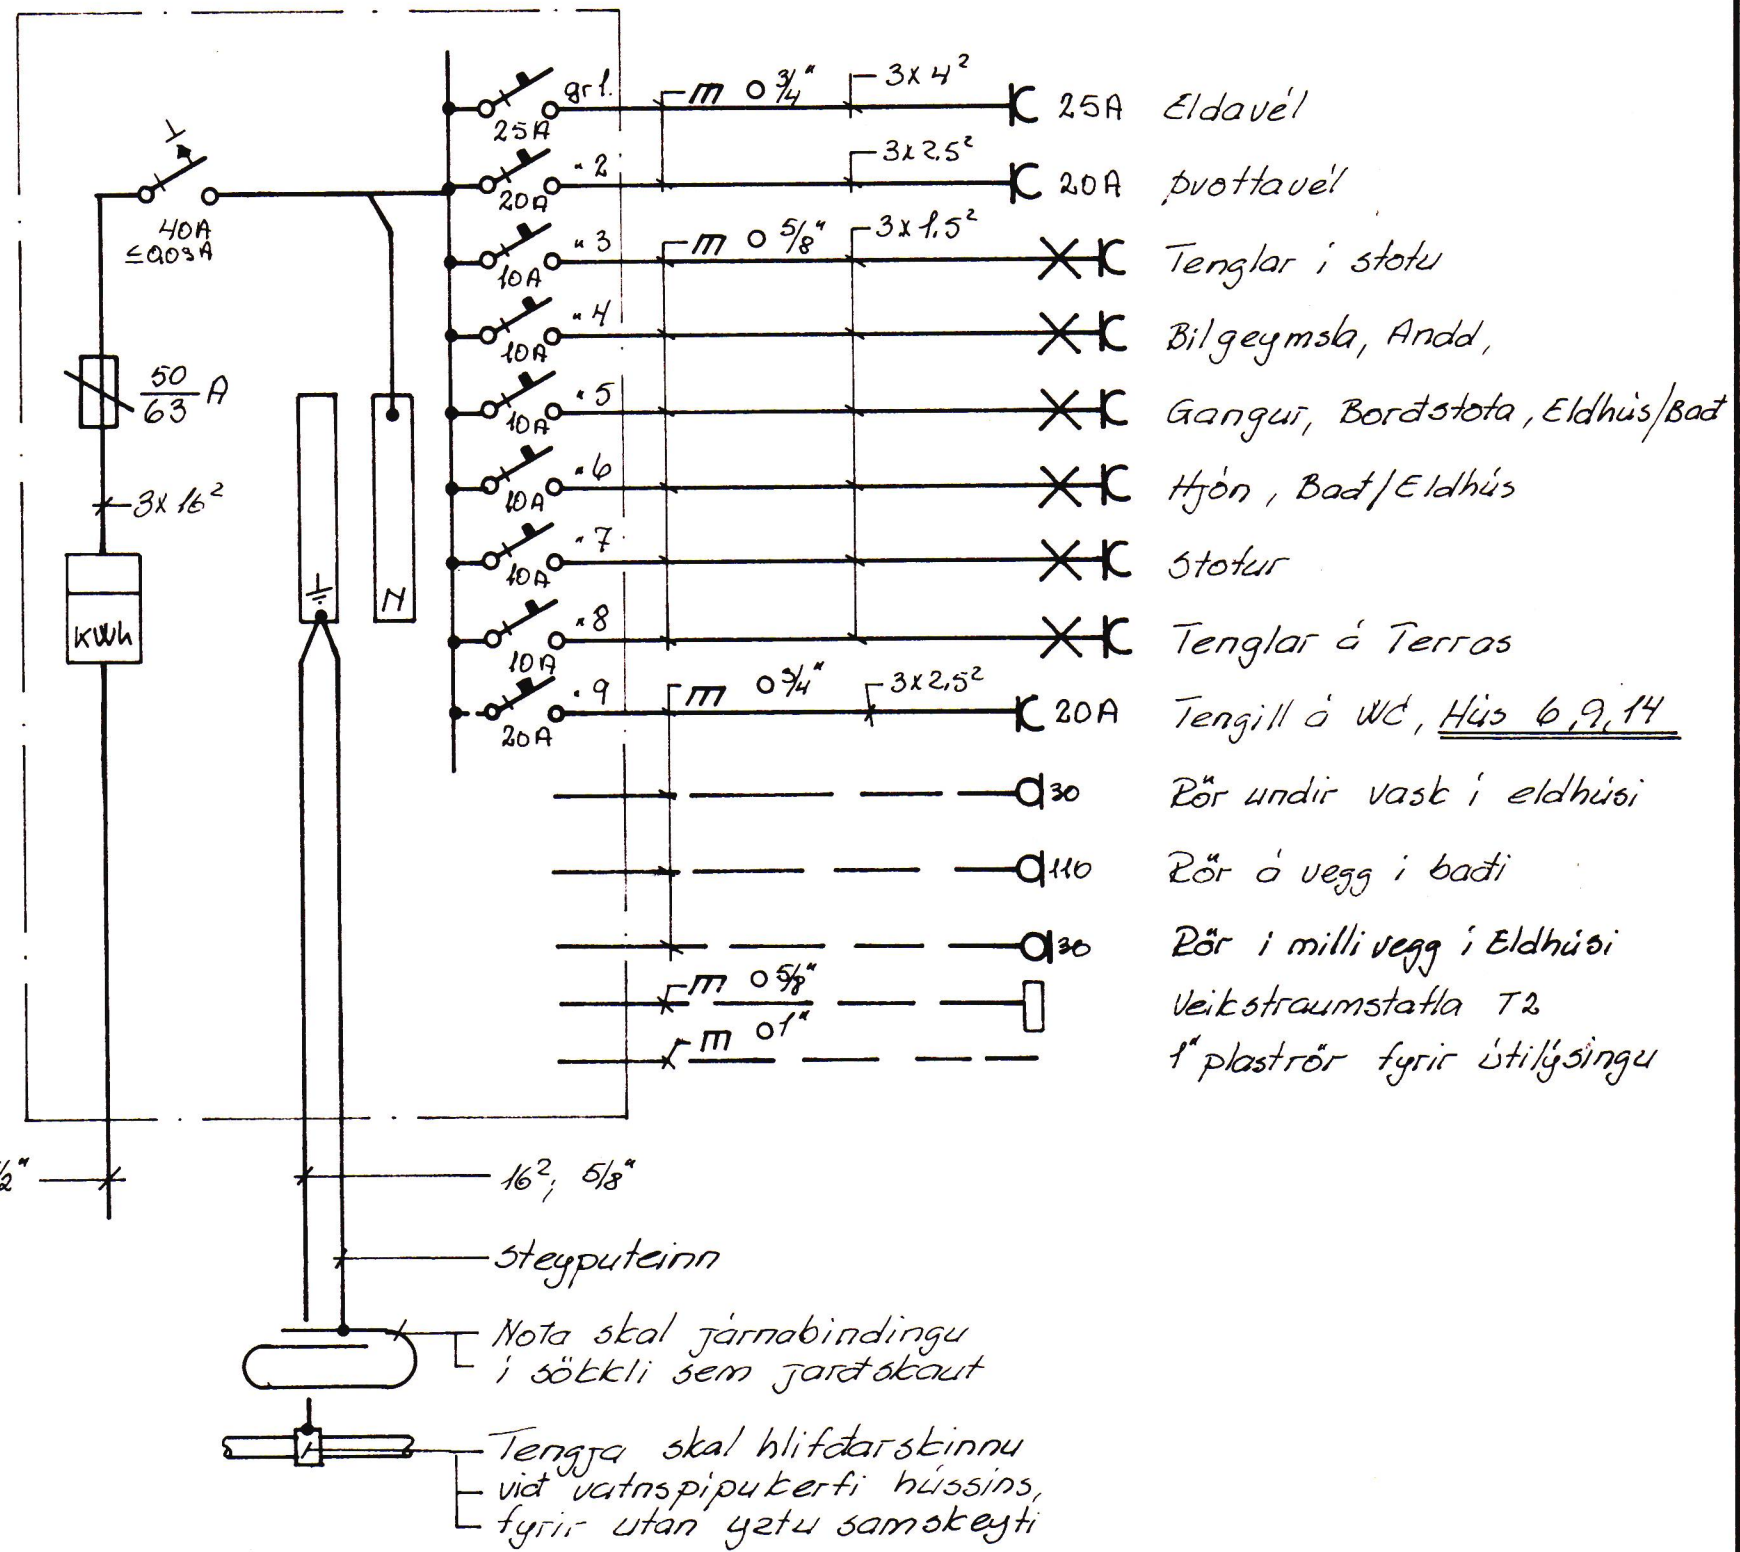 gr 1. m ○ 3/4" 3x4² 25A Eldavél
25A
"2 3x2.5² 20A þvottavél
20A
40A
≤0,03A
"3 m ○ 5/8" 3x1,5² Tenglar í stofu
10A
"4 Bílgeymsla, Andd,
10A
50/63 A
"5 Gangur, Borðstofa, Eldhús/Bað
10A
"6 Hjón, Bað/Eldhús
10A
3x16²
"7 Stofur
10A
N
KWh
"8 Tenglar á Terras
10A
"9 m ○ 3/4" 3x2,5² 20A Tengill á WC, Hús 6,9,14
20A
30 Rör undir vask í eldhúsi
110 Rör á vegg í baði
30 Rör í milli vegg í Eldhúsi
m ○ 5/8" Veikstraumstafla T2
m ○ 1" 1" plaströr fyrir útilýsingu
/2" 16²; 5/8"
Steyputeinn
Nota skal járnabindingu
í sökkli sem jarðskaut
Tengja skal hlífðarskinnu
við vatnspípukerfi hússins,
fyrir utan yztu samskeyti